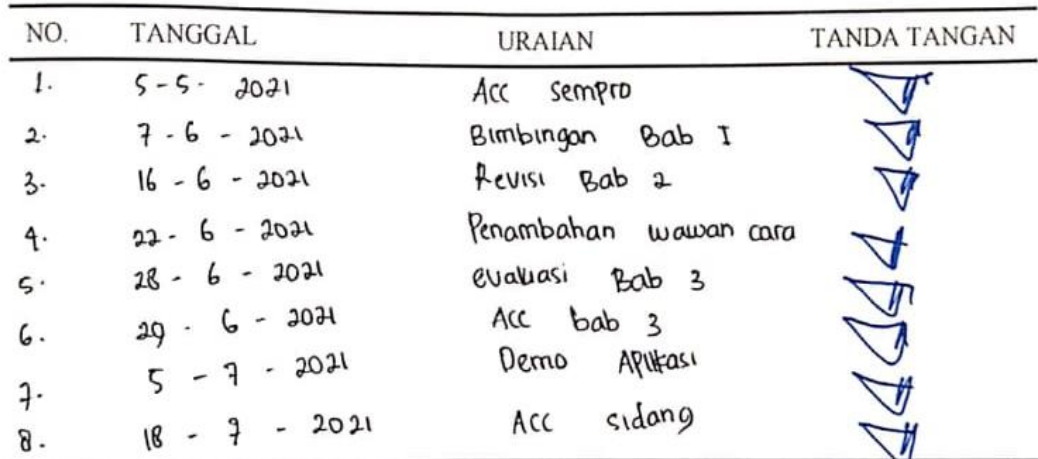 NO. TANGGAL URAIAN TANDA TANGAN
1. 5-5- 2021 Acc sempro
2. 7-6-2021 Bimbingan Bab I
3. 16-6-2021 Revisi Bab 2
4. 22-6-2021 Penambahan wawan cara
5. 28-6-2021 evaluasi Bab 3
6. 29-6-2021 Acc bab 3
7. 5-7-2021 Demo Aplikasi
8. 18-7-2021 Acc sidang